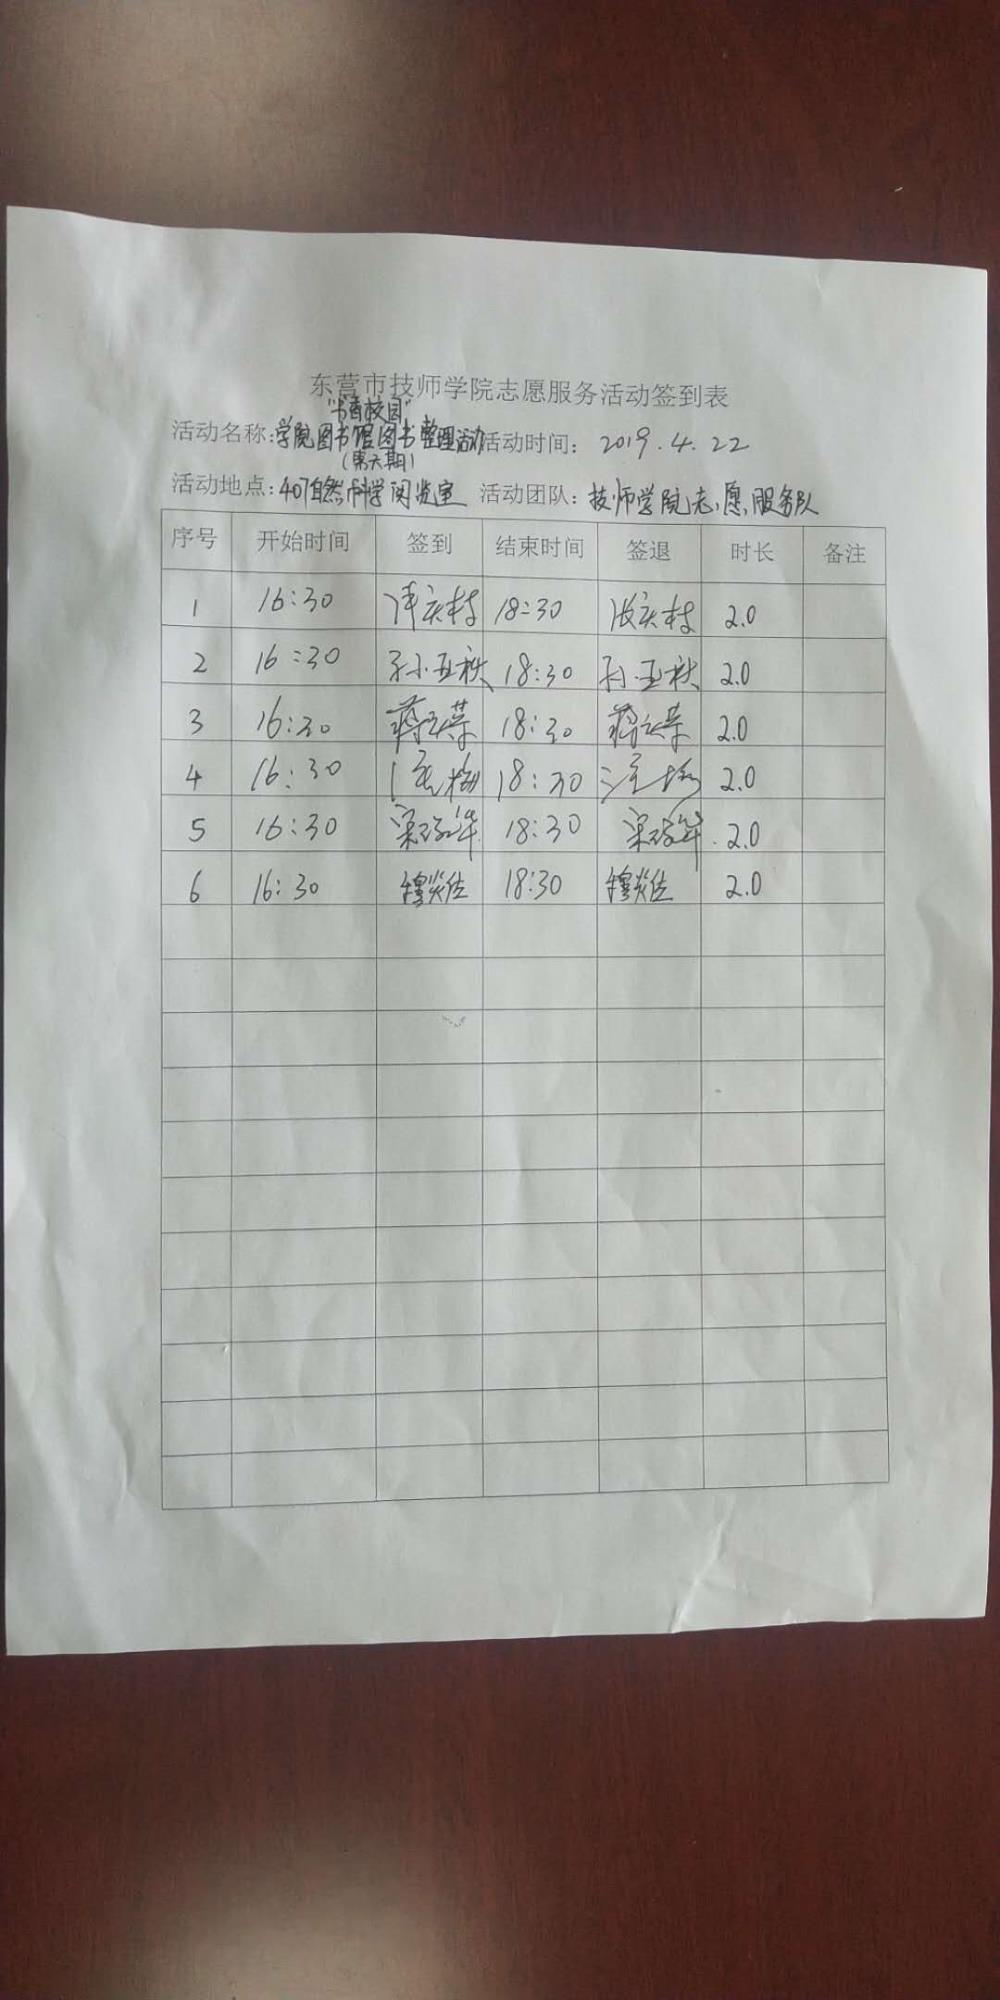 东营市技师学院志愿服务活动签到表
"书香校园"
活动名称:学院图书馆图书整理活动 活动时间: 2019.4.22
(第六期)
活动地点:407自然科学阅览室 活动团队:技师学院志愿服务队
序号 开始时间 签到 结束时间 签退 时长 备注
1 16:30 18:30 2.0
2 16:30 孙玉秋 18:30 孙玉秋 2.0
3 16:30 18:30 2.0
4 16:30 18:30 2.0
5 16:30 18:30 2.0
6 16:30 18:30 2.0